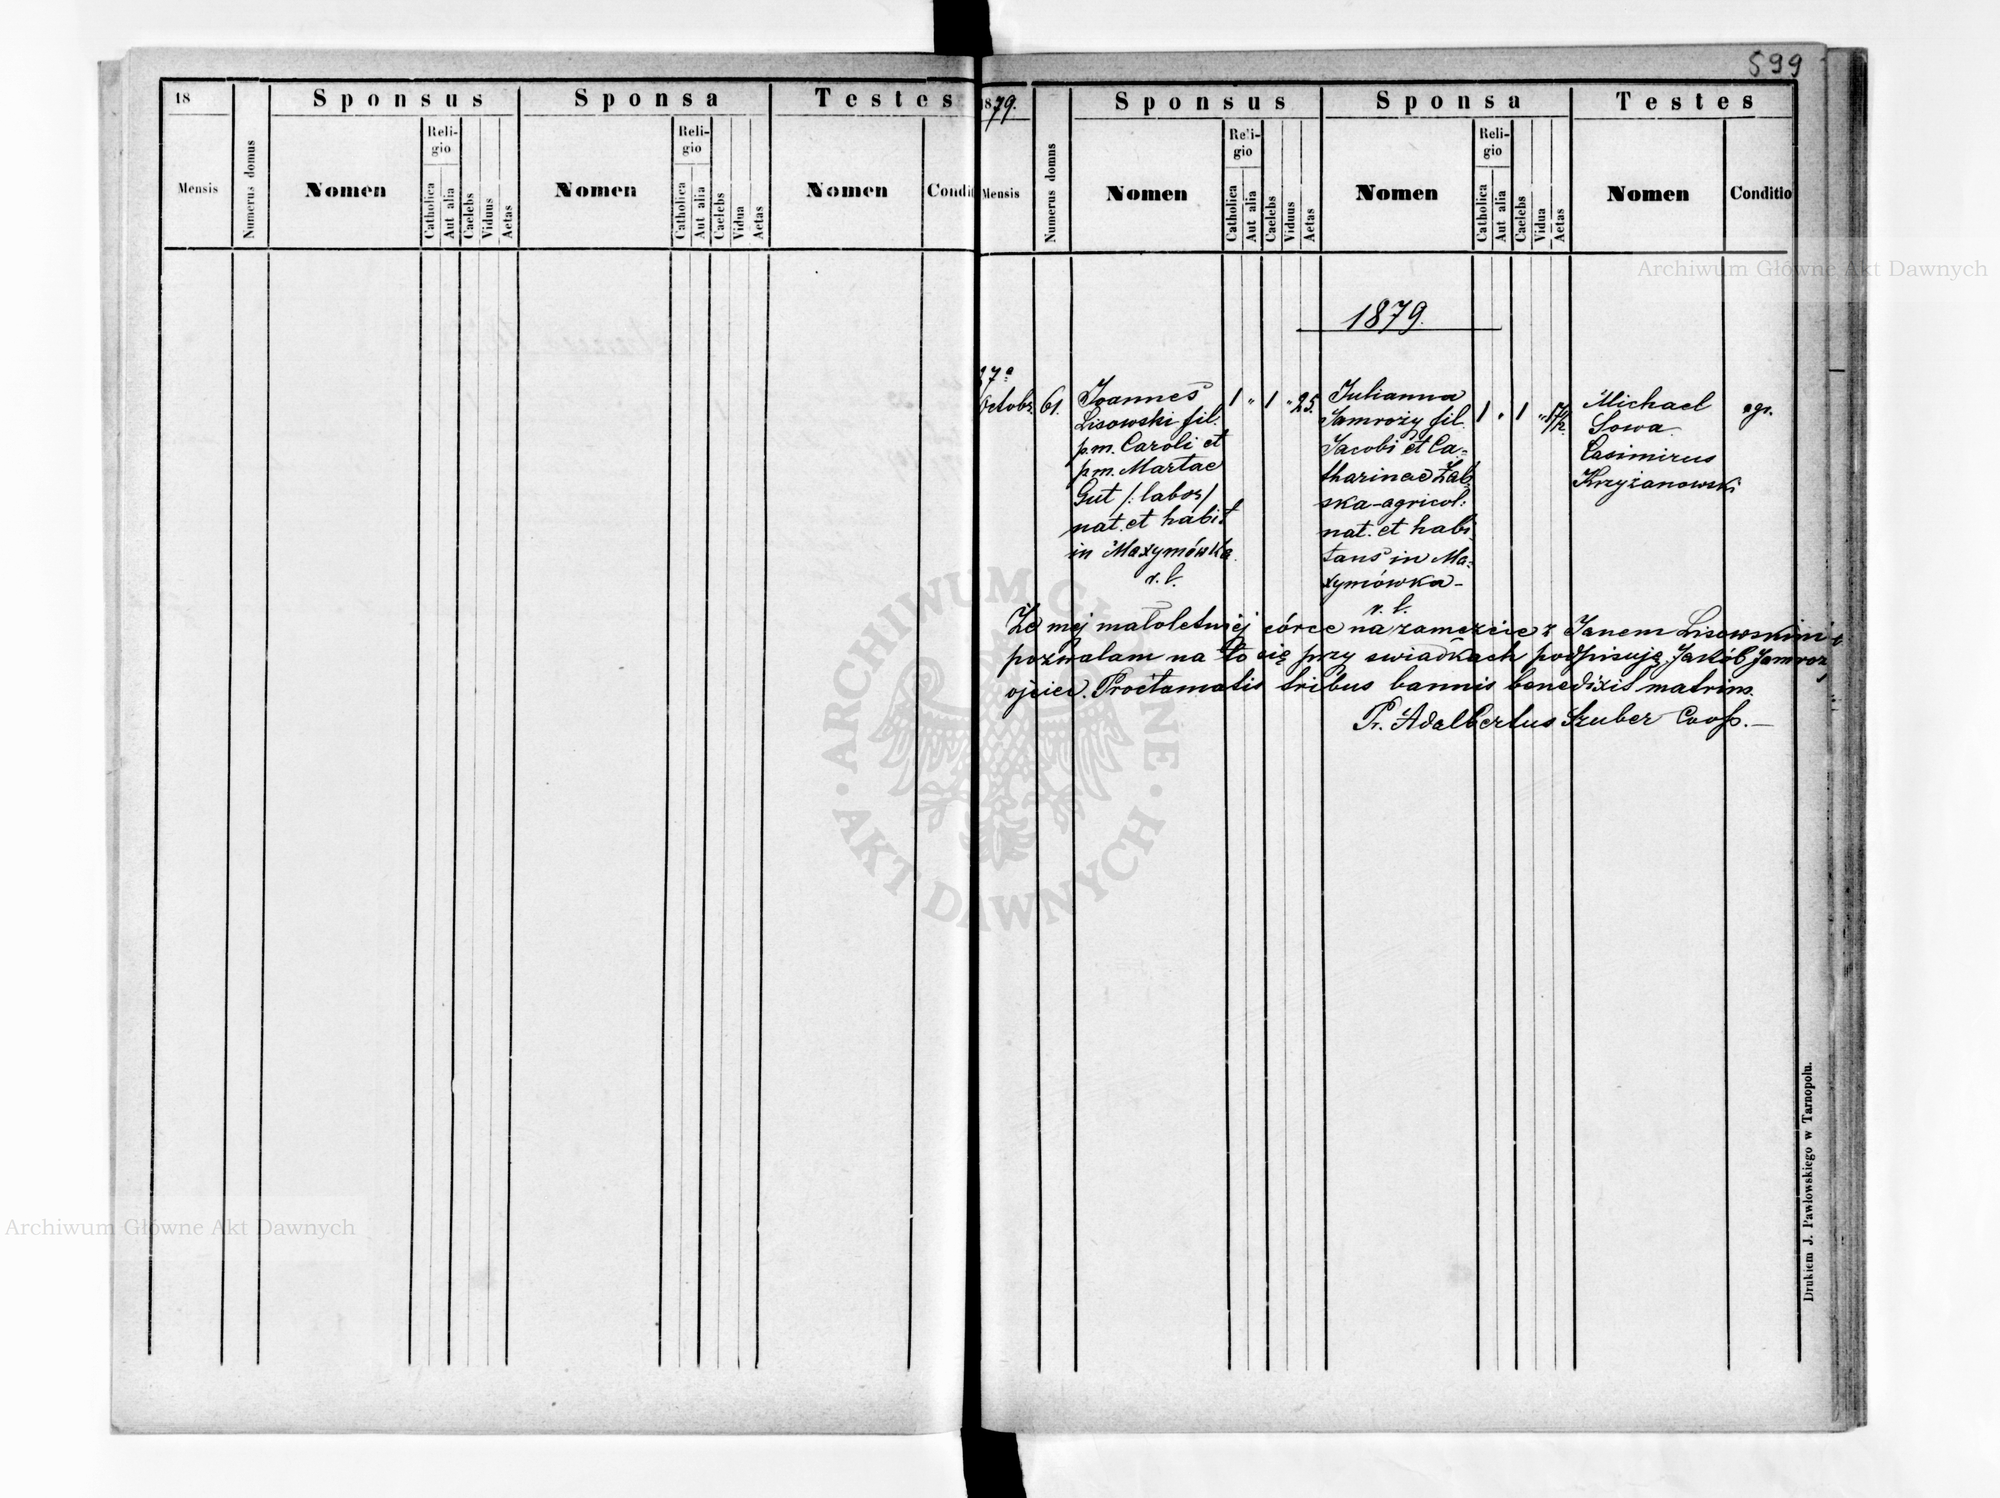 599
18
Sponsus
Sponsa
Testes
Mensis
Numerus domus
Nomen
Religio
Catholica
Aut alia
Caelebs
Viduus
Aetas
Nomen
Religio
Catholica
Aut alia
Caelebs
Vidua
Aetas
Nomen
Condit
1879.
Sponsus
Sponsa
Testes
Mensis
Numerus domus
Nomen
Religio
Catholica
Aut alia
Caelebs
Viduus
Aetas
Nomen
Religio
Catholica
Aut alia
Caelebs
Vidua
Aetas
Nomen
Conditio
Archiwum Główne Akt Dawnych
1879.
Octobr.
61.
Joannes
Lisowski fil.
p.m. Caroli et
p.m. Martae
Gut /: labor/
nat. et habit
in Maxymówka
r. l.
1 " 1 " 25.
Julianna
Jamroży fil.
Jacobi et Ca-
tharinae Żab
ska-agricol:
nat. et habi
tans in Ma-
xymówka-
r. l.
1 " 1 "
Michael
Sowa
Casimirus
Krzyżanowski
agr.
Że mej małoletniej córce na zamęzcie z Janem Lisowskim
pozwalam na to się przy swiadkach podpisuję. Jakób Jamroz
ojciec. Proclamatis tribus bannis benedixit matrim.
Pr. Adalbertus Szuber Coop.—
ARCHIWUM GŁÓWNE
AKT DAWNYCH
Archiwum Główne Akt Dawnych
Drukiem J. Pawłowskiego w Tarnopolu.